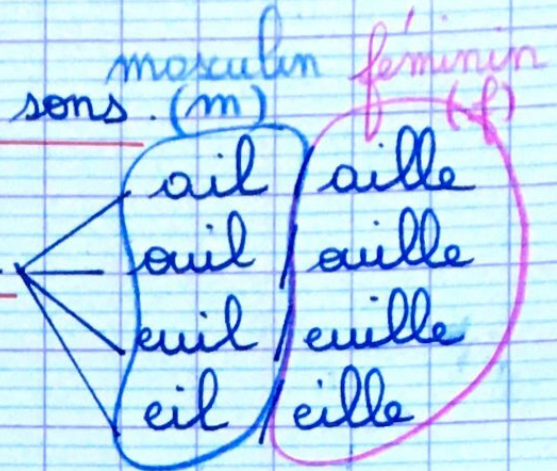 masculin féminin
sons. (m) (f)
ail / aille
ouil / ouille
euil / euille
eil / eille